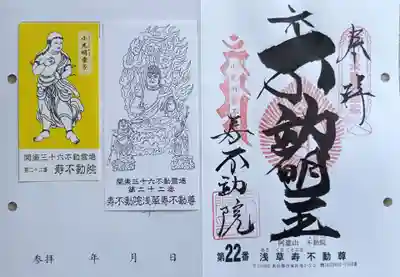 小光明童子
関東三十六不動霊場
第二十二番 寿不動院
関東三十六不動霊場
第二十二番
寿不動院浅草寿不動尊
参拝 年 月 日
奉拝
不動明王
寿不動院
第22番
阿遮山 不動院
浅草寿不動尊